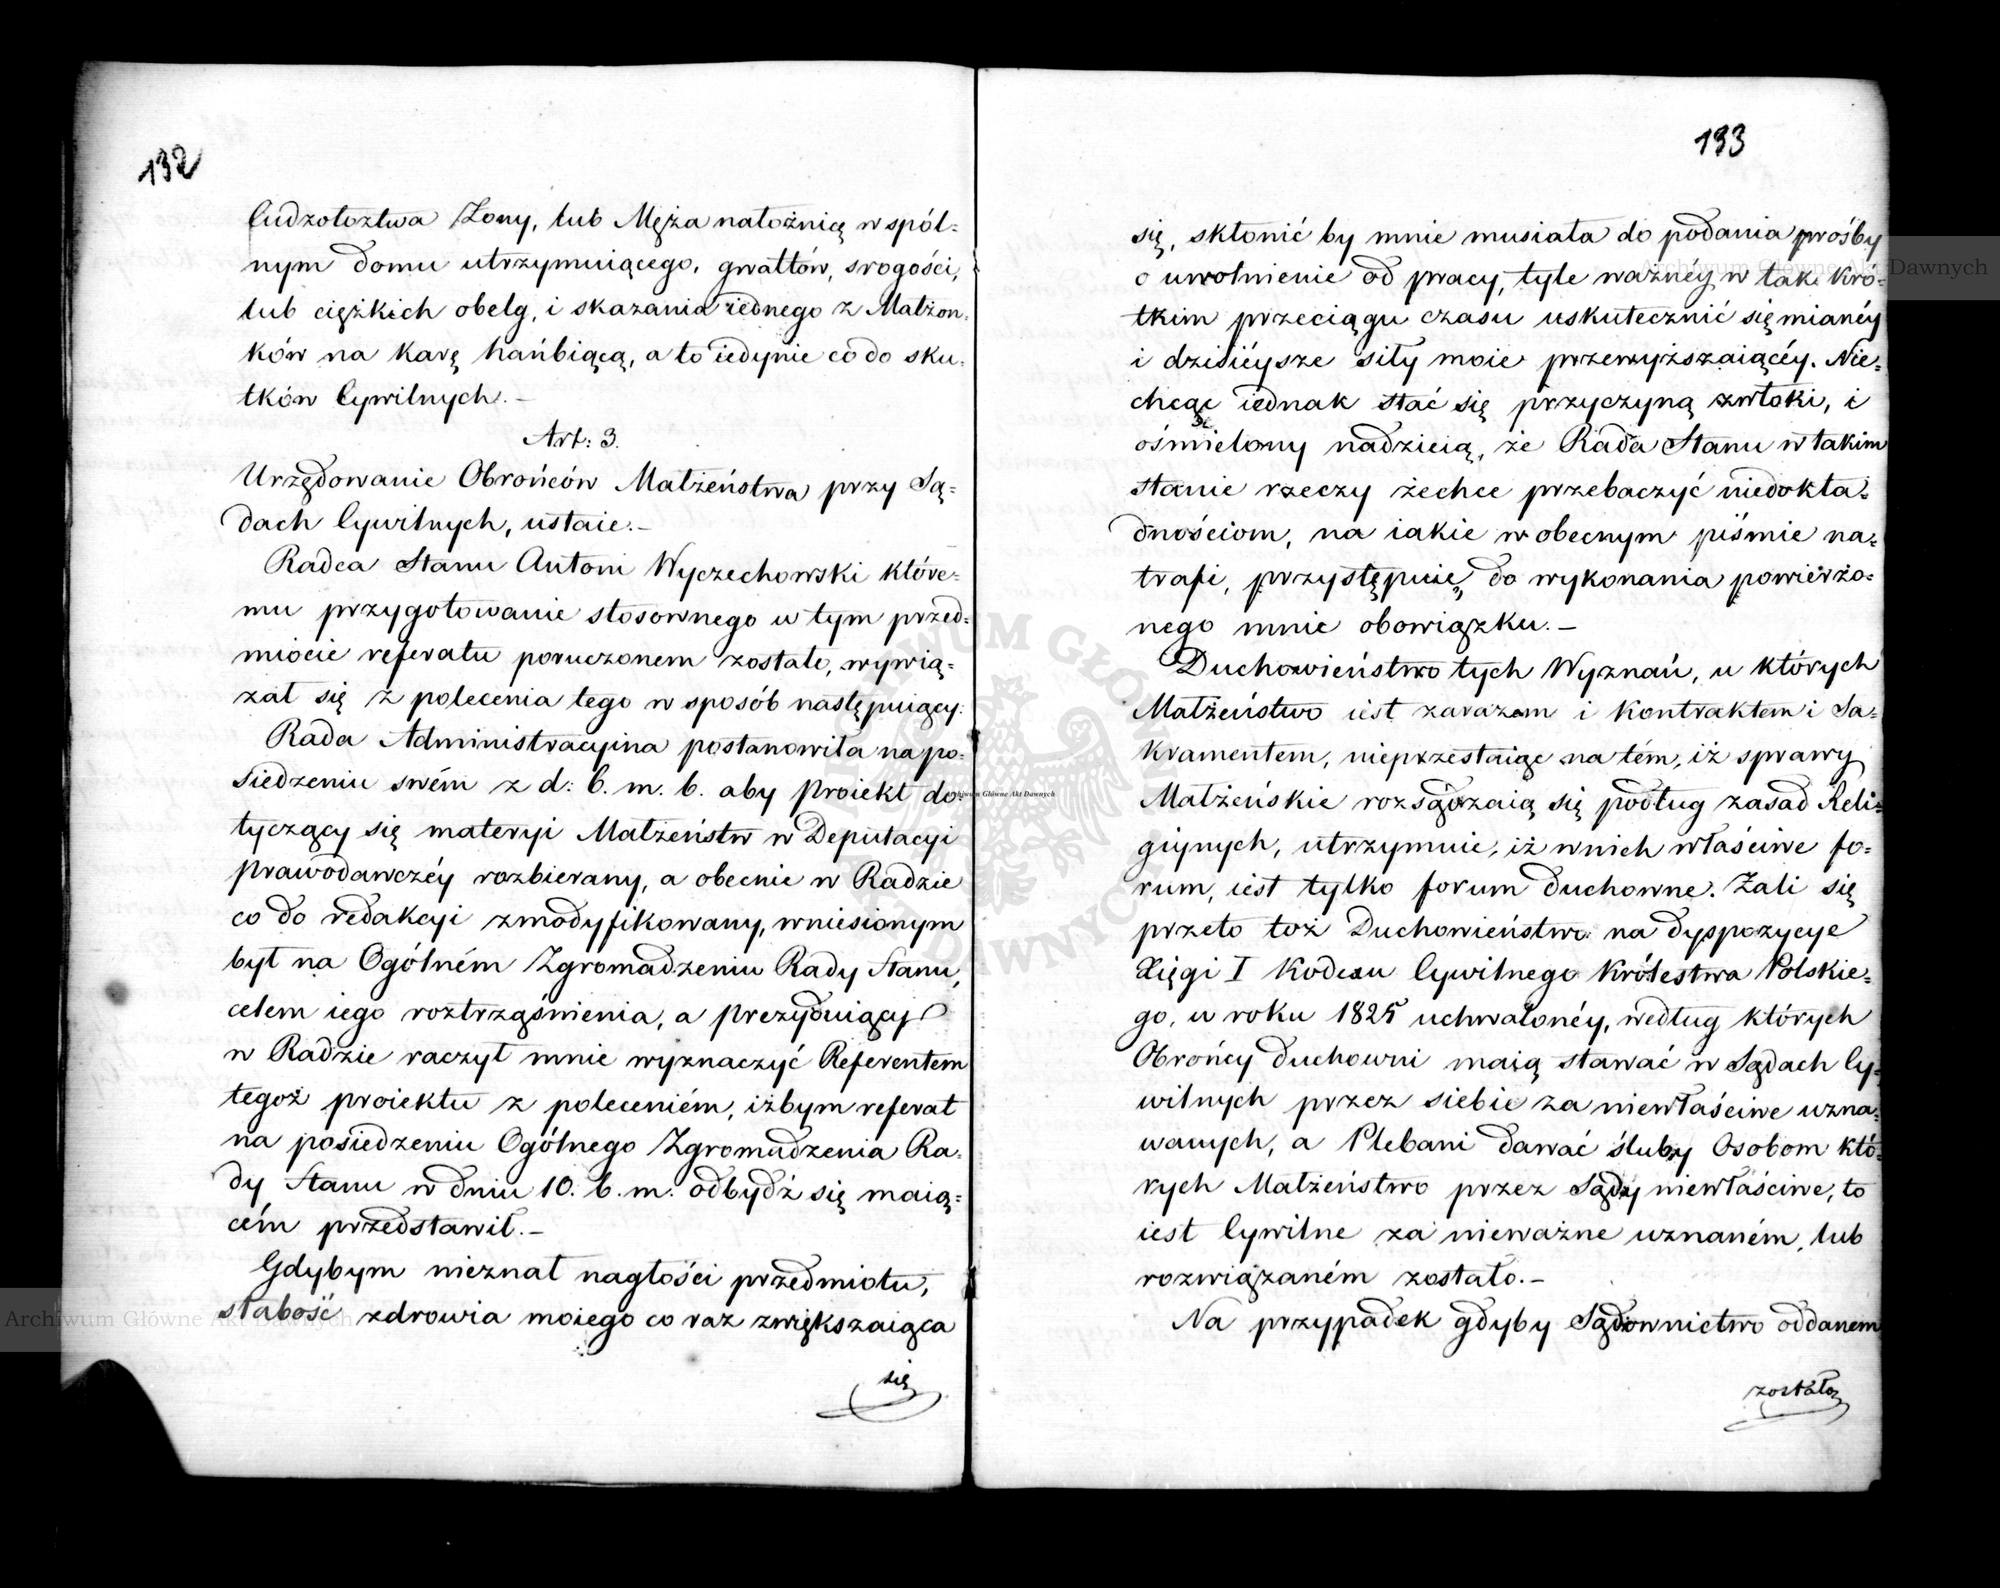 132
Cudzołoztwa Żony, lub Męża nałożnicę w spól-
nym domu utrzymuiącego, gwałtów, srogości,
lub ciężkich obelg, i skazania iednego z Małżon-
ków na karę hańbiącą, a to iedynie co do sku-
tków Cywilnych.–
Art: 3.
Urzędowanie Obrońców Małżeństwa przy Są-
dach Cywilnych, ustaie.–
Radca Stanu Antoni Wyczechowski które-
mu przygotowanie stosownego w tym przed-
miocie referatu poruczonem zostało, wywią-
zał się z polecenia tego w sposób następuiący:
Rada Administracyina postanowiła na po-
siedzeniu swém z d: 6. m. b. aby Proiekt do-
tyczący się materyi Małżeństw w Deputacyi
prawodawczéy rozbierany, a obecnie w Radzie
co do redakcyi zmodyfikowany, wniesionym
był na Ogólném Zgromadzeniu Rady Stanu,
celem iego roztrząśnienia, a prezyduiący
w Radzie raczył mnie wyznaczyć Referentem
tegoż proiektu z poleceniém, iżbym referat
na posiedzeniu Ogólnego Zgromadzenia Ra-
dy Stanu w dniu 10. b. m. odbydź się maią-
cém przedstawił.–
Gdybym nieznał nagłości przedmiotu,
słabość zdrowia moiego co raz zwiększaiąca
się
133
się, skłonić by mnie musiała do podania prośby
o uwolnienie od pracy, tyle ważnéy w tak kró-
tkim przeciągu czasu uskutecznić się mianéy
i dzisiéysze siły moie przewyższaiącéy. Nie-
chcąc iednak stać się przyczyną zwłoki, i
ośmielony nadzieią, że Rada Stanu w takim
stanie rzeczy żechce przebaczyć niedokła-
dnościom, na iakie w obecnym piśmie na-
trafi, przystępuię do wykonania powierzo-
nego mnie obowiązku.–
Duchowieństwo tych Wyznań, u których
Małżeństwo iest zarazem i kontraktem i Sa-
kramentem, nieprzestaiąc na tém, iż sprawy
Małżeńskie rozsądzaią się podług zasad Reli-
giynych, utrzymuie, iż w nich właściwe fo-
rum, iest tylko forum duchowne. Żali się
przeto toż Duchowieństwo na dyspozycye
Xięgi I Kodexu Cywilnego Królestwa Polskie-
go, w roku 1825 uchwalonéy, według których
Obrońcy duchowni maią stawać w Sądach Cy-
wilnych przez siebie za niewłaściwe uzna-
wanych, a Plebani dawać śluby Osobom któ-
rych Małżeństwo przez Sądy niewłaściwe, to
iest Cywilne za nieważne uznaném, lub
rozwiązaném zostało.–
Na przypadek gdyby Sądownictwo oddanem
zostało
Archiwum Główne Akt Dawnych
Archiwum Główne Akt Dawnych
Archiwum Główne Akt Dawnych
ARCHIWUM GŁÓWNE AKT DAWNYCH